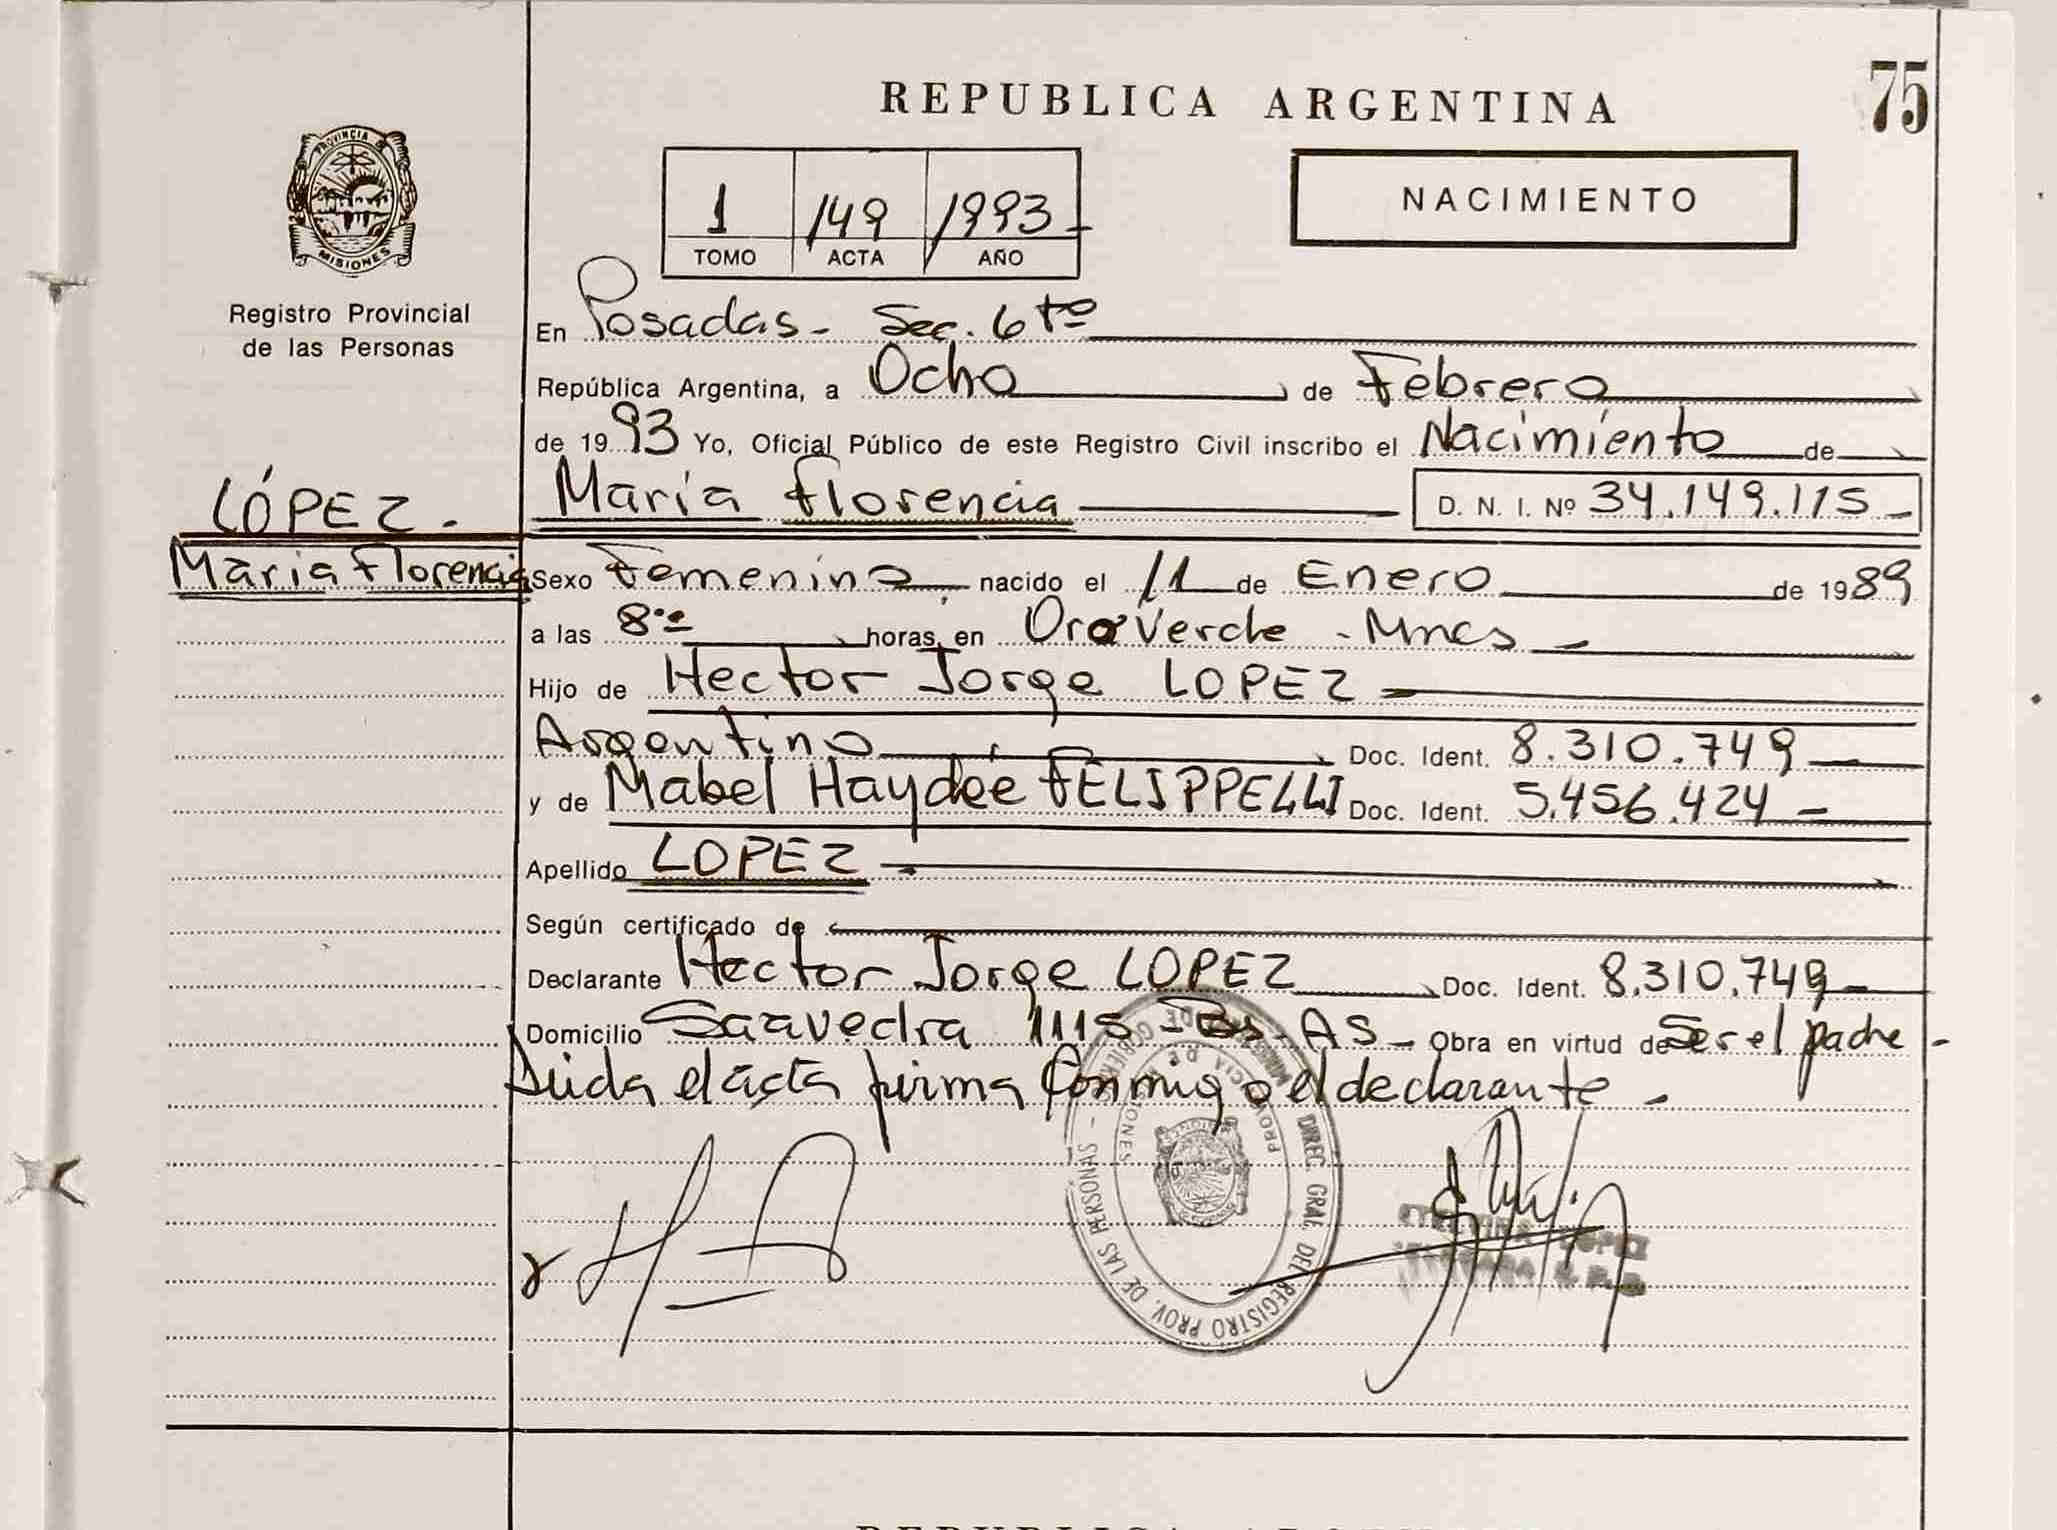 REPUBLICA ARGENTINA
75
PROVINCIA
MISIONES
Registro Provincial
de las Personas
1 149 1993
TOMO ACTA AÑO
NACIMIENTO
En Posadas - Sec. 6ta
República Argentina, a Ocho de Febrero
de 1993 Yo, Oficial Público de este Registro Civil inscribo el Nacimiento de
LÓPEZ.
María Florencia D. N. I. Nº 34.149.115
María Florencia
Sexo Femenino nacido el 11 de Enero de 1989
a las 8 horas, en Oro Verde - Mnes
Hijo de Hector Jorge LOPEZ
Argentino Doc. Ident. 8.310.749
y de Mabel Haydée FELIPPELLI Doc. Ident. 5.456.424
Apellido LOPEZ
Según certificado de
Declarante Hector Jorge LOPEZ Doc. Ident. 8.310.749
Domicilio Saavedra 1115 - Bs. AS Obra en virtud de Ser el padre
el acta firma Conmigo el declarante
DIREC. GRAL. DEL REGISTRO PROV. DE LAS PERSONAS -
PROVINCIA DE MISIONES
LOPEZ